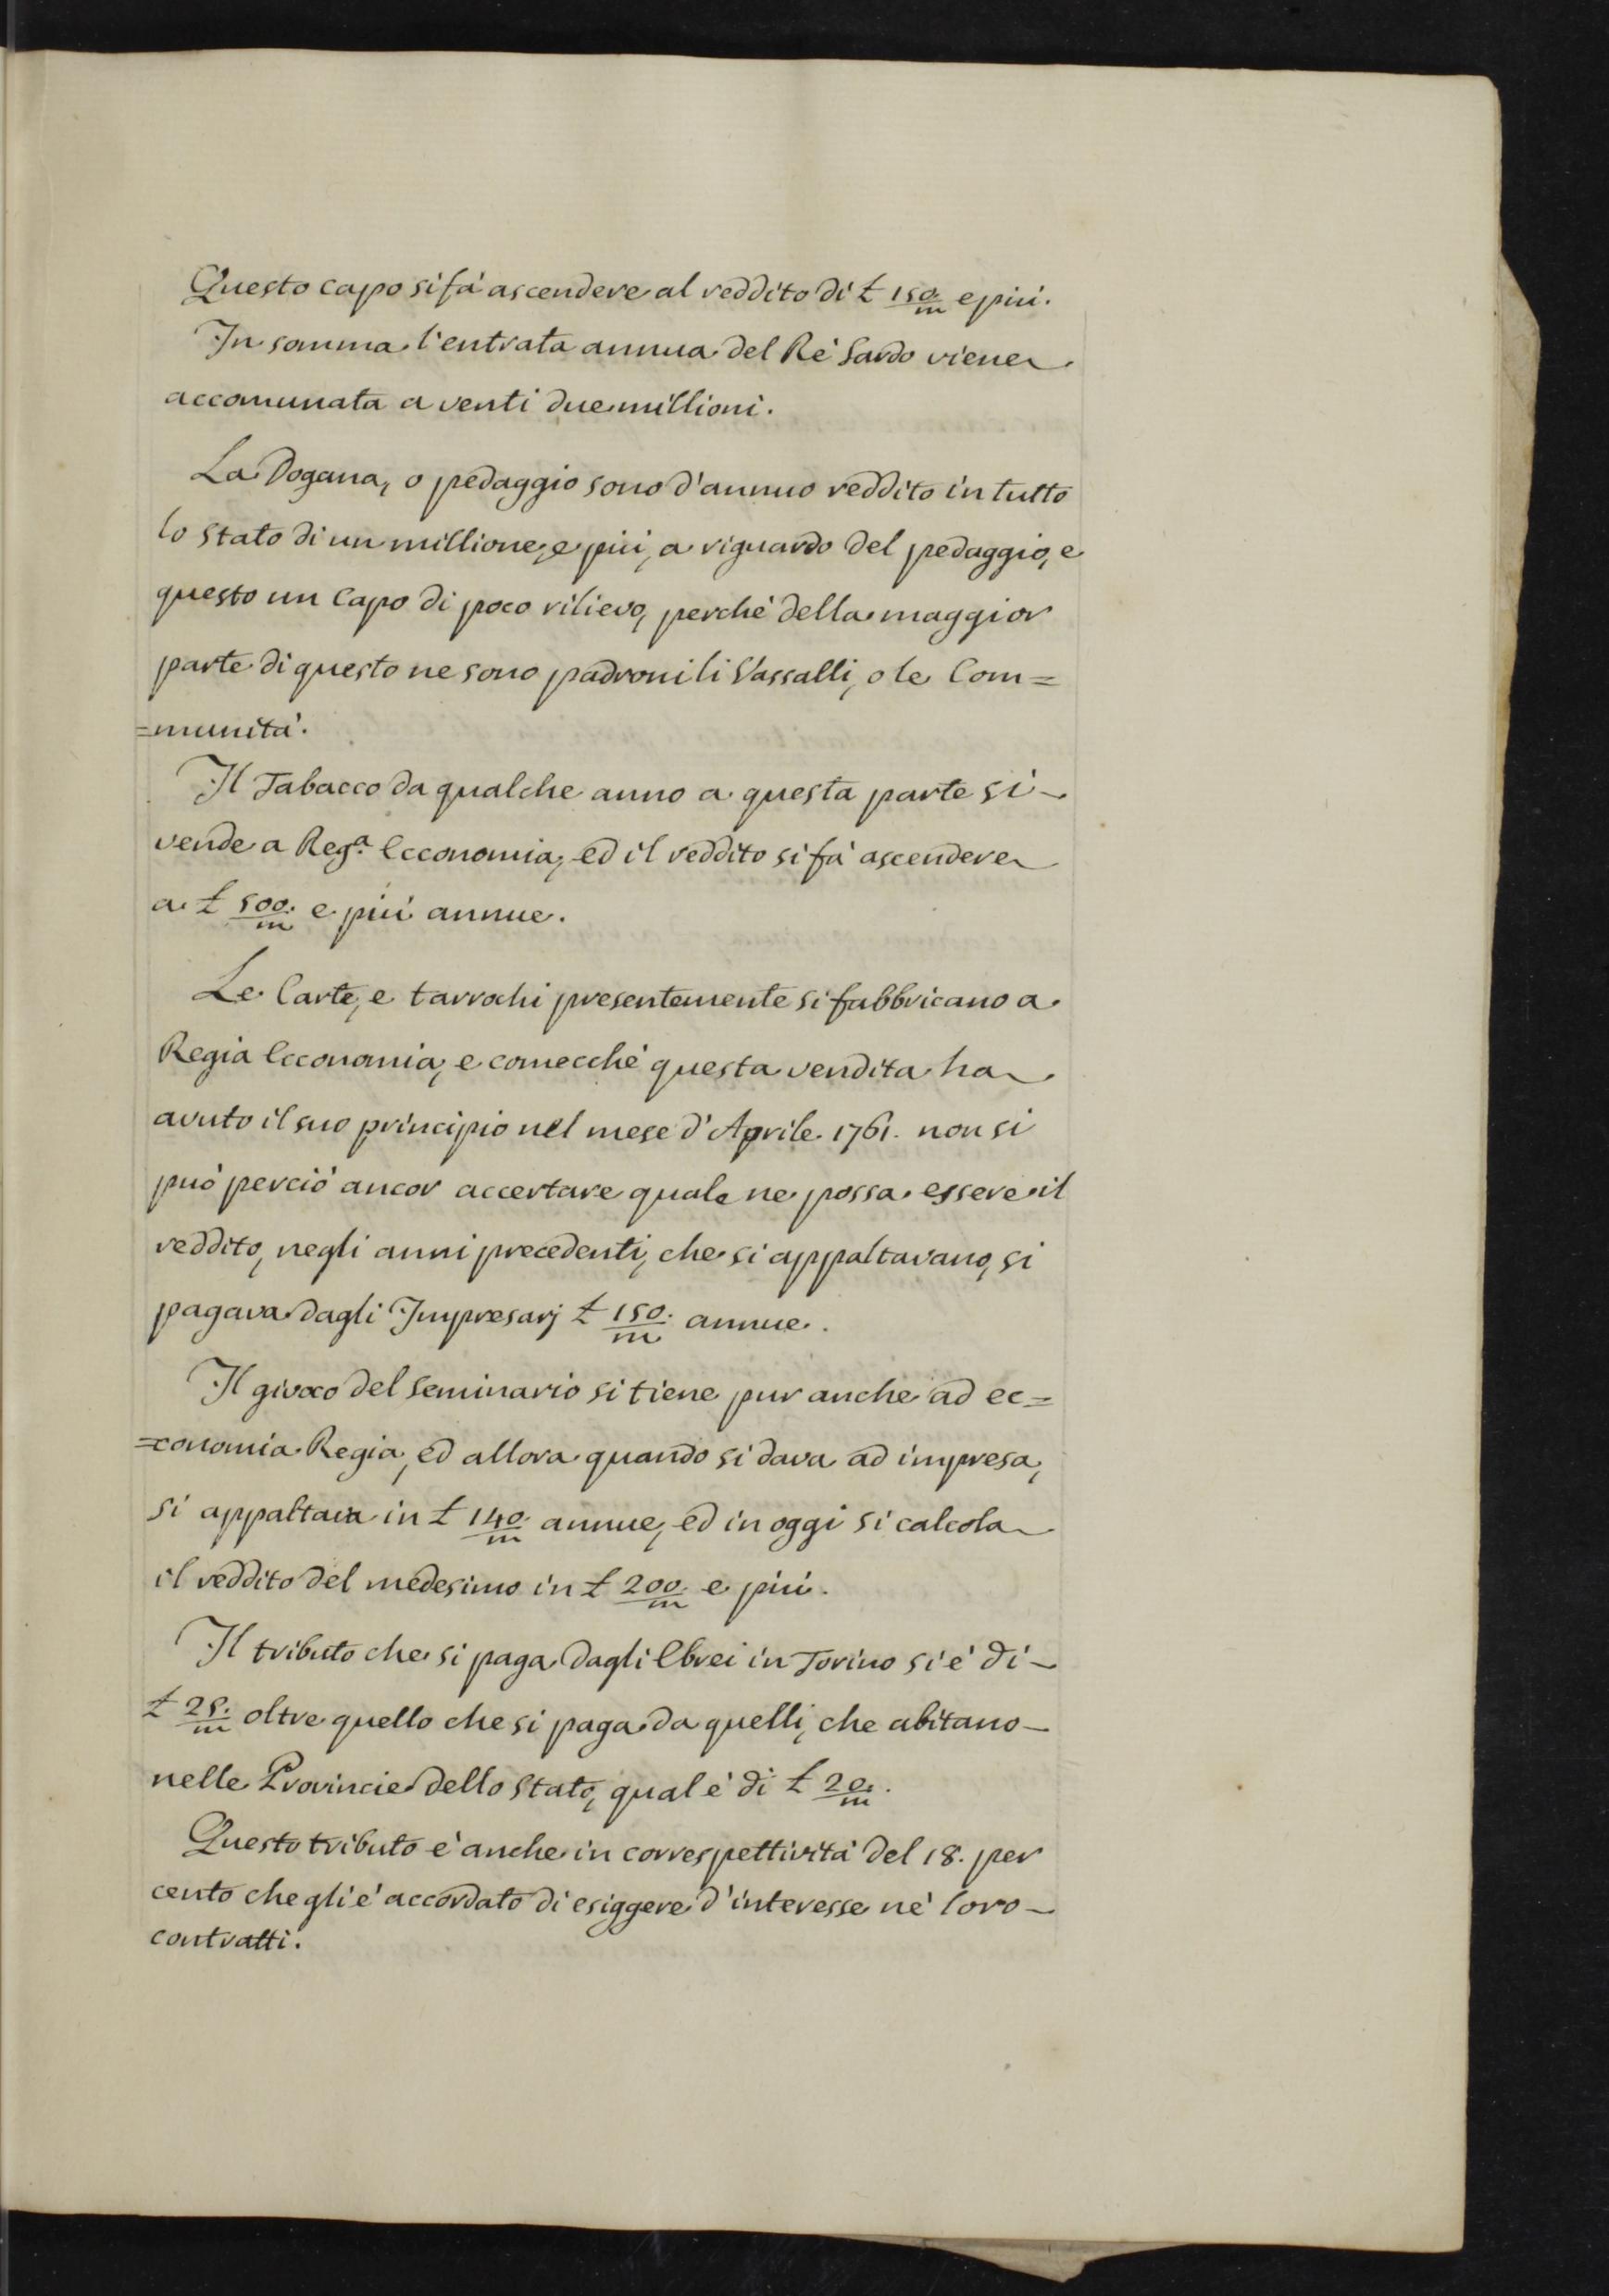 Questo capo si fá ascendere al reddito di £ 150/m e piú.
In somma l'entrata annua del Ré Sardo viene
accomunata a venti due millioni.
La Dogana, o pedaggio sono d'annuo reddito in tutto
lo Stato di un millione, e piú, a riguardo del pedaggio, e
questo un Capo di poco rilievo, perché della maggior
parte di questo ne sono padroni li Vassalli, o le Com=
=munitá.
Il Tabacco da qualche anno a questa parte si
vende a Reg.ª Ecconomia, ed il reddito si fá ascendere
a £ 500/m e piú annue.
Le Carte, e tarrochi presentemente si fabbricano a
Regia Ecconomia, e comecché questa vendita ha
avuto il suo principio nel mese d'Aprile 1761. non si
puó perció ancor accertare quale ne possa essere il
reddito, negli anni precedenti, che si appaltavano, si
pagava dagli Impresarj £ 150/m annue.
Il givoco del Seminario si tiene pur anche ad ec=
=conomia Regia, ed allora quando si dava ad impresa,
si appaltava in £ 140/m annue, ed in oggi si calcola
il reddito del medesimo in £ 200/m e piú.
Il tributo che si paga dagli Ebrei in Torino si é di
£ 25/m oltre quello che si paga da quelli, che abitano
nelle Provincie dello Stato, qual é di £ 20/m.
Questo tributo é anche in correspettivitá del 18. per
cento che gli é accordato di esiggere d'interesse né loro
contratti.